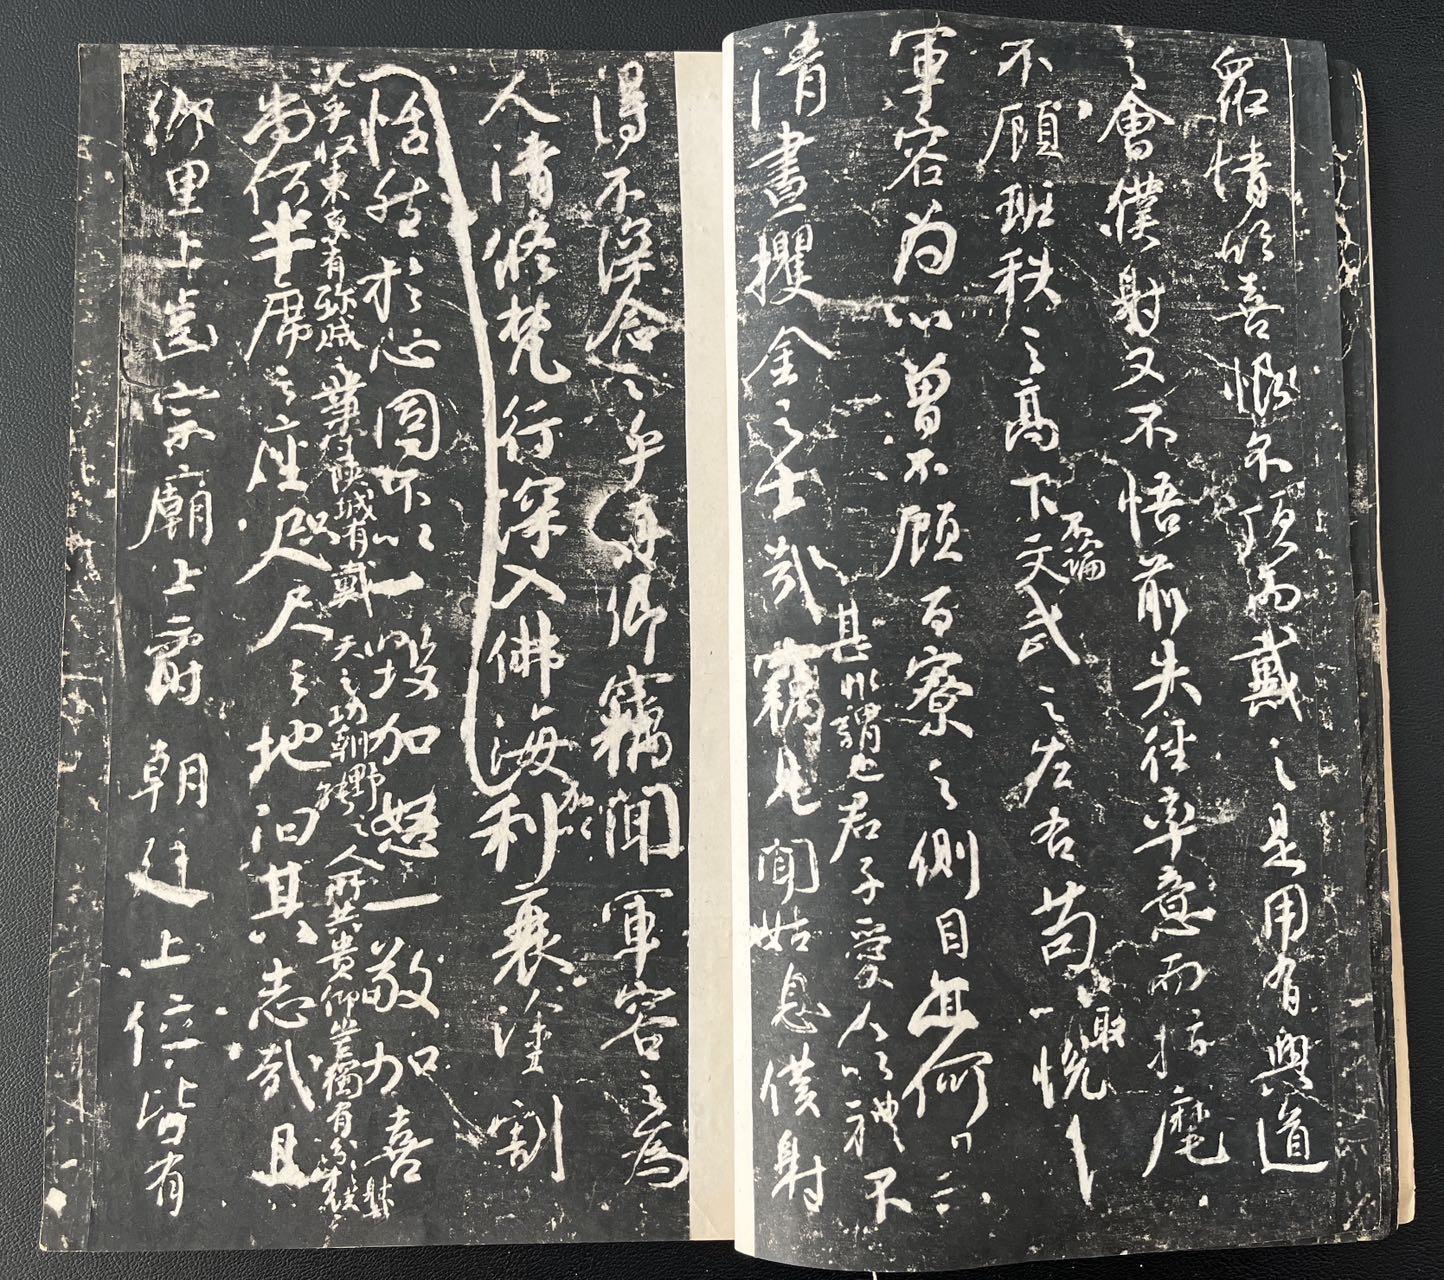 眾情欣喜恨不頂而戴之是用有興道
之會僕射又不悟前失徑率意而指麾
不顧班秩之高下不論文武之左右苟以取悅
軍容為心曾不顧百寮之側目亦何異
清晝攫金之士哉
甚非謂也君子愛人以禮不
竊見聞姑息僕射
得不深念之乎真卿竊聞軍容之為
人清修梵行深入佛海加以利衰塗割
恬然於心固不以一毀加怒一敬加喜
況乎收東京有殄賊之業守陝城有戴天之功朝野之人所共貴仰豈獨有分於僕射哉
尚何半席之座咫尺之地汩其志哉且
鄉里上齒宗廟上爵朝廷上位皆有